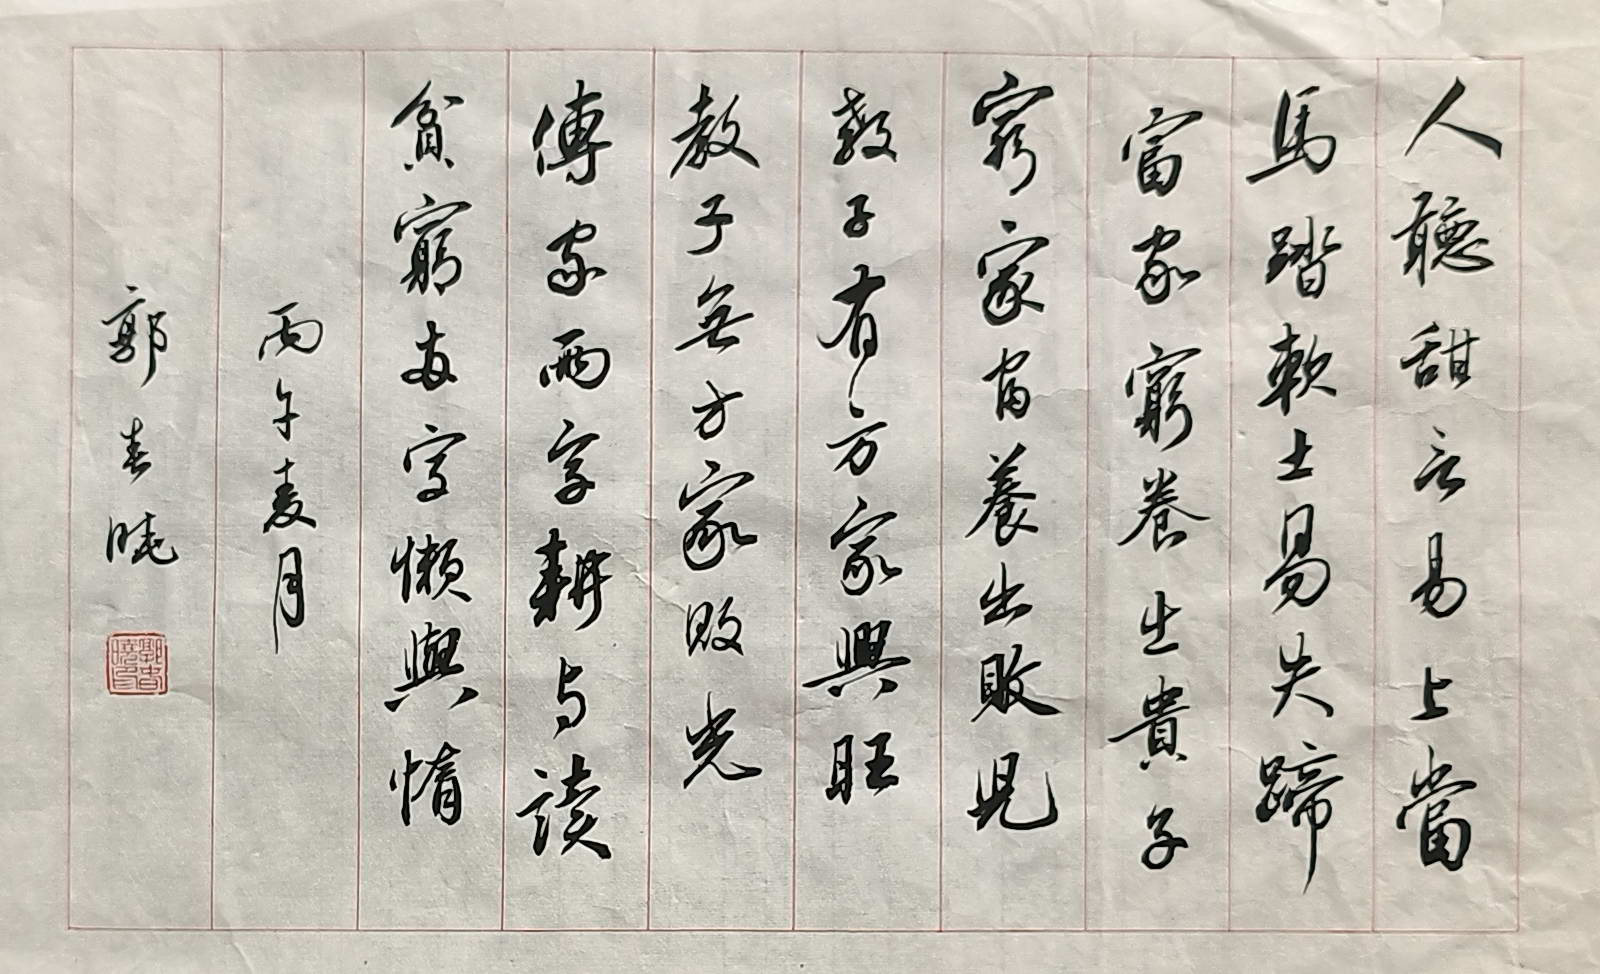 人聽甜言易上當
馬踏軟土易失蹄
富家窮養出貴子
窮家富養出敗兒
教子有方家興旺
教子無方家敗光
傳家兩字耕与读
貧窮友字懶與惰
丙午麦月
郭春曉